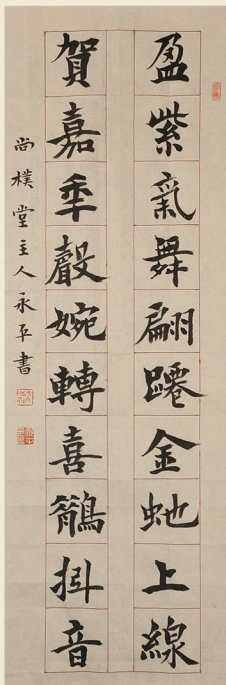 盈紫氣舞翩躚金虵上線
賀嘉年聲婉轉喜鵲抖音
尚樸堂主人永平書